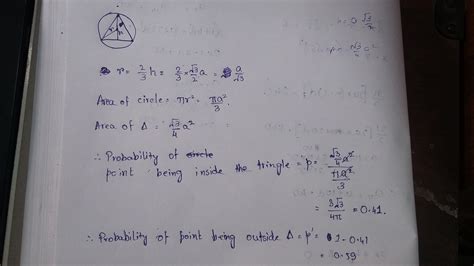 r = 2/3 h = 2/3 · √3/2 a = a/√3
Area of circle = πr² = πa²/3.
Area of Δ = √3/4 a²
∴ Probability of circle
point being inside the tringle = p = (√3/4 a²)/(πa²/3)
= 3√3/4π = 0.41.
∴ Probability of point being outside Δ = p' = 1-0.41
= 0.59